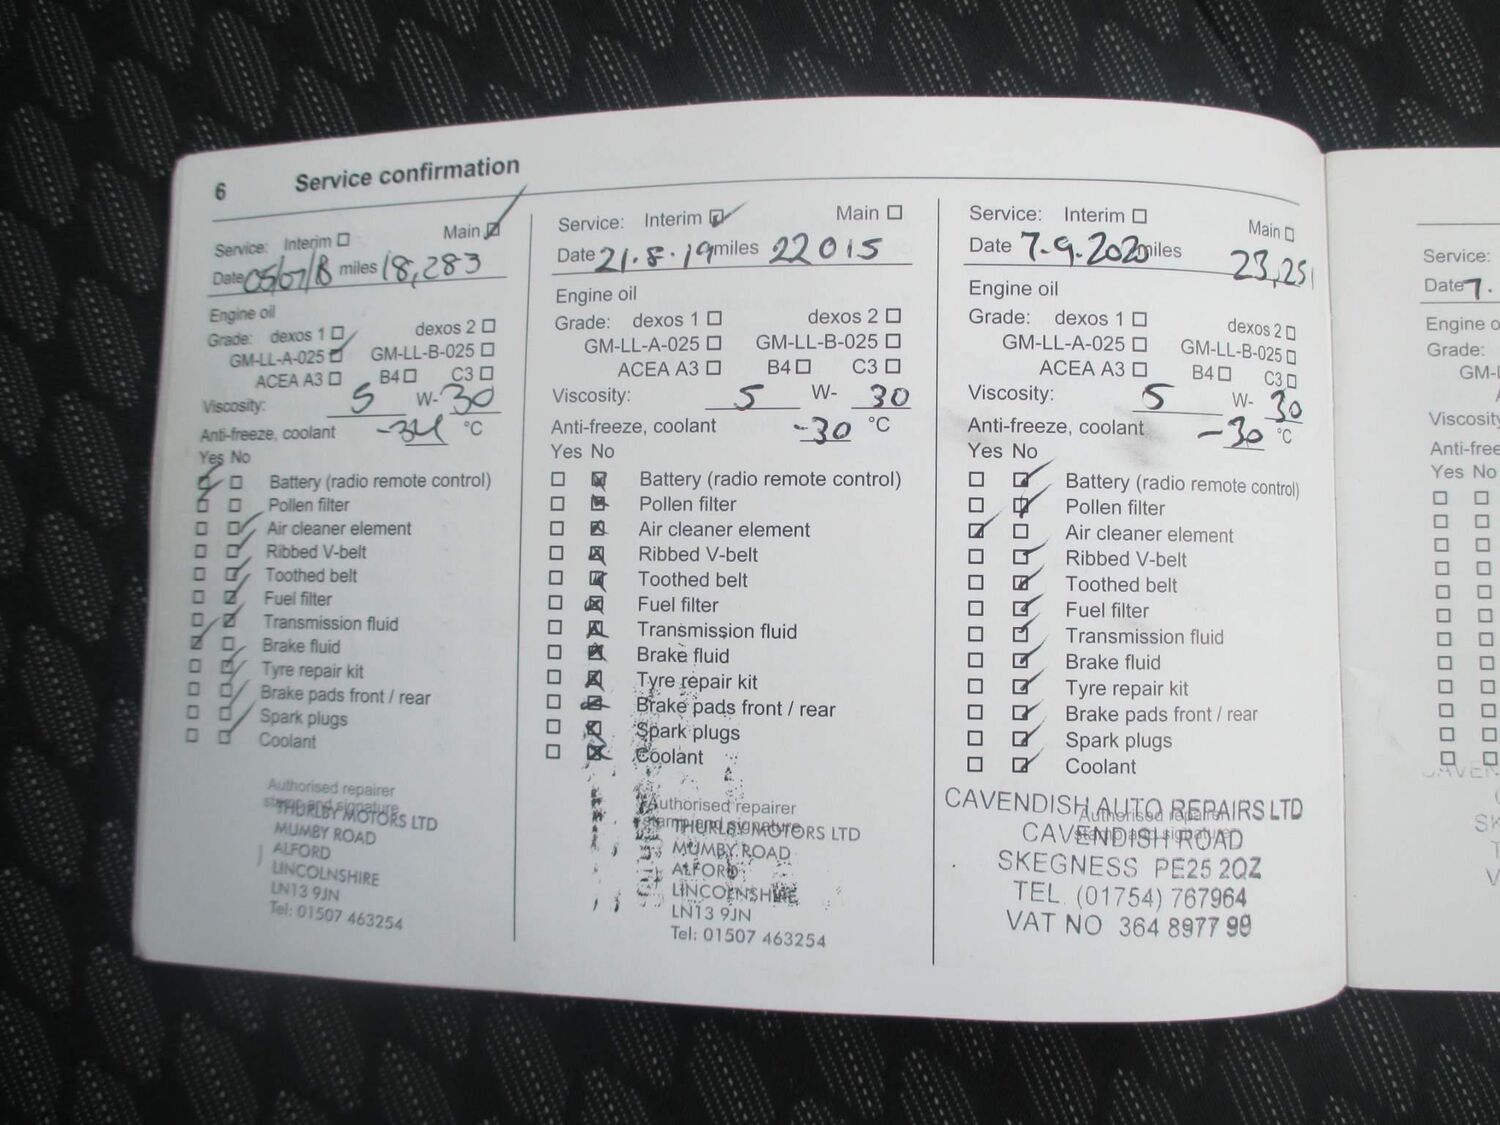 6 Service confirmation
Service: Interim Main
Date 05/07/18 miles 18,283
Engine oil
Grade: dexos 1 dexos 2
GM-LL-A-025 GM-LL-B-025
ACEA A3 B4 C3
Viscosity: 5 W- 30
Anti-freeze, coolant -34 °C
Yes No
Battery (radio remote control)
Pollen filter
Air cleaner element
Ribbed V-belt
Toothed belt
Fuel filter
Transmission fluid
Brake fluid
Tyre repair kit
Brake pads front / rear
Spark plugs
Coolant
Authorised repairer
stamp and signature
THURLBY MOTORS LTD
MUMBY ROAD
ALFORD
LINCOLNSHIRE
LN13 9JN
Tel: 01507 463254
Service: Interim Main
Date 21.8.19 miles 22015
Engine oil
Grade: dexos 1 dexos 2
GM-LL-A-025 GM-LL-B-025
ACEA A3 B4 C3
Viscosity: 5 W- 30
Anti-freeze, coolant -30 °C
Yes No
Battery (radio remote control)
Pollen filter
Air cleaner element
Ribbed V-belt
Toothed belt
Fuel filter
Transmission fluid
Brake fluid
Tyre repair kit
Brake pads front / rear
Spark plugs
Coolant
Authorised repairer
stamp and signature
THURLBY MOTORS LTD
MUMBY ROAD
ALFORD
LINCOLNSHIRE
LN13 9JN
Tel: 01507 463254
Service: Interim Main
Date 7.9.2020 miles 23,251
Engine oil
Grade: dexos 1 dexos 2
GM-LL-A-025 GM-LL-B-025
ACEA A3 B4 C3
Viscosity: 5 W- 30
Anti-freeze, coolant -30 °C
Yes No
Battery (radio remote control)
Pollen filter
Air cleaner element
Ribbed V-belt
Toothed belt
Fuel filter
Transmission fluid
Brake fluid
Tyre repair kit
Brake pads front / rear
Spark plugs
Coolant
Authorised repairer
stamp and signature
CAVENDISH AUTO REPAIRS LTD
CAVENDISH ROAD
SKEGNESS PE25 2QZ
TEL. (01754) 767964
VAT NO 364 8977 99
Service:
Date 7.
Engine o
Grade:
GM-L
Viscosity
Anti-free
Yes No
CAVEN
SK
T
V